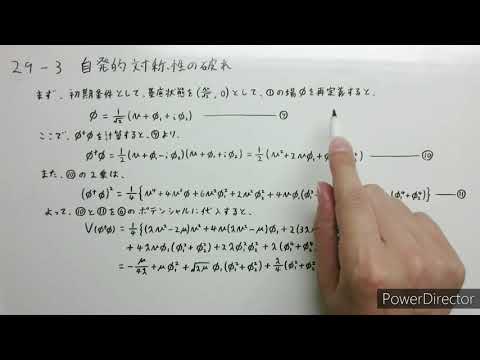 29-3 自発的対称性の破れ
まず、初期条件として、基底状態を ( , 0) として、①の場φを再定義すると、
φ = 1/√2 (v + φ₁ + iφ₂) ——— ⑨
ここで、φ†φを計算すると、⑨より、
φ†φ = 1/2 (v + φ₁ - iφ₂)(v + φ₁ + iφ₂) = 1/2 (v² + 2vφ₁ + ——— ⑩
また、⑩の2乗は、
(φ†φ)² = 1/4 {v⁴ + 4v³φ₁ + 6v²φ₁² + 2v²φ₂² + 4vφ₁(φ₁² + } ——— ⑪
よって、⑩と⑪を⑥のポテンシャルに代入すると、
V(φ†φ) = 1/4 {(λv² - 2μ)v² + 4v(λv² - μ)φ₁ + 2(3λ
+ 4λvφ₁(φ₁² + φ₂²) + 2λφ₁²φ₂² + λ(φ₁⁴ + φ₂⁴
+ μφ₁² + √λμ φ₁(φ₁² + φ₂²) + λ/4 (φ₁² + φ₂²
PowerDirector